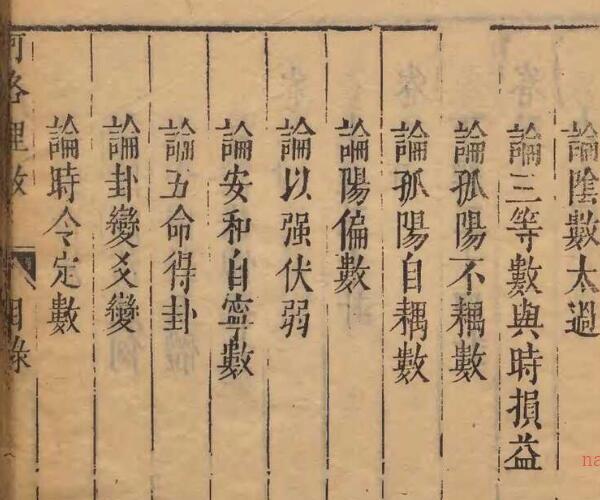 論陰數太過
論三等數與時損益
論孤陽不耦數
論孤陽自耦數
論陽偏數
論以强伏弱
論安和自寧數
論五命得卦
論卦變爻變
論時令定數
河洛理數
目錄
na